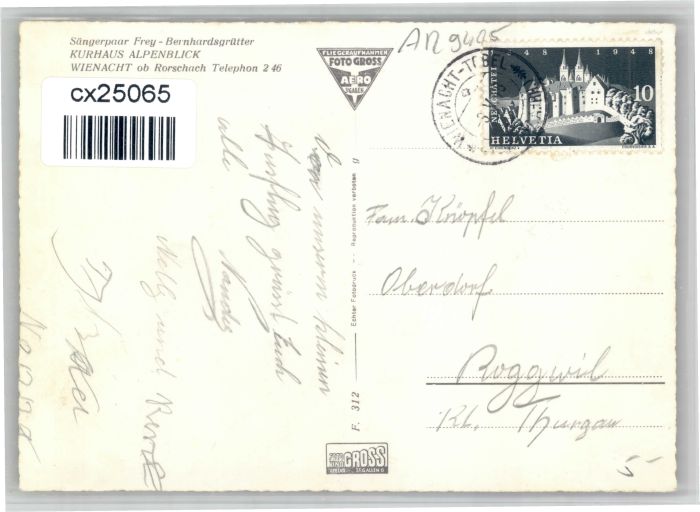 Sängerpaar Frey - Bernhardsgrütter
KURHAUS ALPENBLICK
WIENACHT ob Rorschach Telephon 2 46
cx25065
FLIEGERAUFNAHMEN
FOTO GROSS
AERO
ST.GALLEN
AR 9405
WIENACHT-TOBEL
1848 1948
NEUCHÂTEL
10
HELVETIA
COURVOISIER S.A.
Von unserm kleinen
Ausflug grüsst Euch
alle
Nelly und
F. 312 Echter Fotodruck -- Reproduktion verboten
FOTO GROSS
ST. GALLEN
Fam. Knöpfel
Oberdorf
Roggwil
Kt. Thurgau
5-